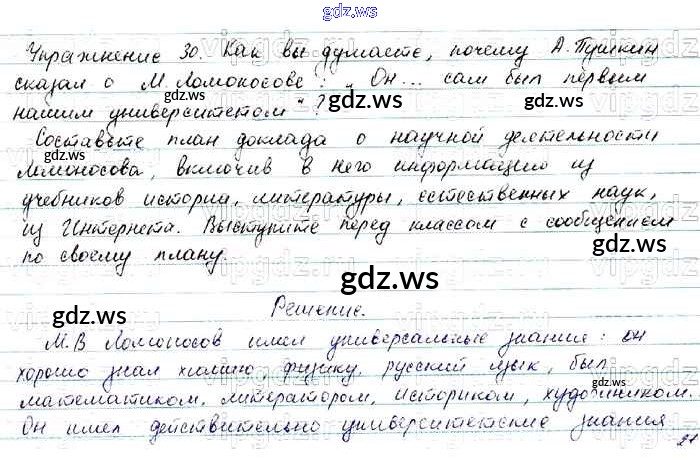 gdz.ws
Упражнение 30. Как вы думаете, почему А. Пушкин
сказал о М. Ломоносове: „Он... сам был первым
нашим университетом"?
gdz.ws gdz.ws
Составьте план доклада о научной деятельности
Ломоносова, включив в него информацию из
учебников истории, литературы, естественных наук,
из Интернета. Выступите перед классом с сообщением
по своему плану.
gdz.ws
Решение.
gdz.ws gdz.ws
М.В Ломоносов имел универсальные знания: он
хорошо знал химию, физику, русский язык, был
математиком, литератором, историком, художником.
Он имел действительно университетские знания
gdz.ws gdz.ws
21